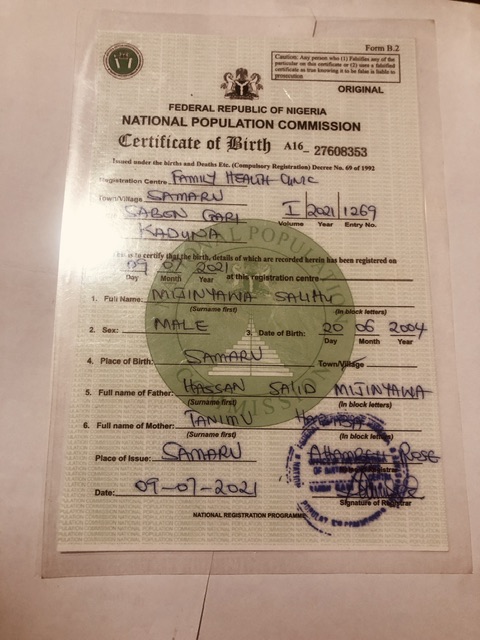 Form B.2
Caution: Any person who (1) Falsifies any of the
particular on this certificate or (2) uses a falsified
certificate as true knowing it to be false is liable to
prosecution
ORIGINAL
FEDERAL REPUBLIC OF NIGERIA
NATIONAL POPULATION COMMISSION
Certificate of Birth A16_ 27608353
Issued under the births and Deaths Etc. (Compulsory Registration) Decree No. 69 of 1992
Registration Centre FAMILY HEALTH CLINIC
Town/Village SAMARU
SABON GARI I 2021 1269
Volume Year Entry No.
KADUNA
This is to certify that the birth, details of which are recorded herein has been registered on
09 07 2021
Day Month Year at this registration centre
1. Full Name: MIJINYAWA SALIHU
(Surname first) (In block letters)
2. Sex: MALE 3. Date of Birth: 20 06 2004
Day Month Year
4. Place of Birth: SAMARU Town/Village
5. Full name of Father: HASSAN SALID MIJINYAWA
(Surname first) (In block letters)
6. Full name of Mother: TANIMU
(Surname first) (In block letters)
Place of Issue: SAMARU ROSE
Date: 09-07-2021
Signature of Registrar
NATIONAL REGISTRATION PROGRAMME